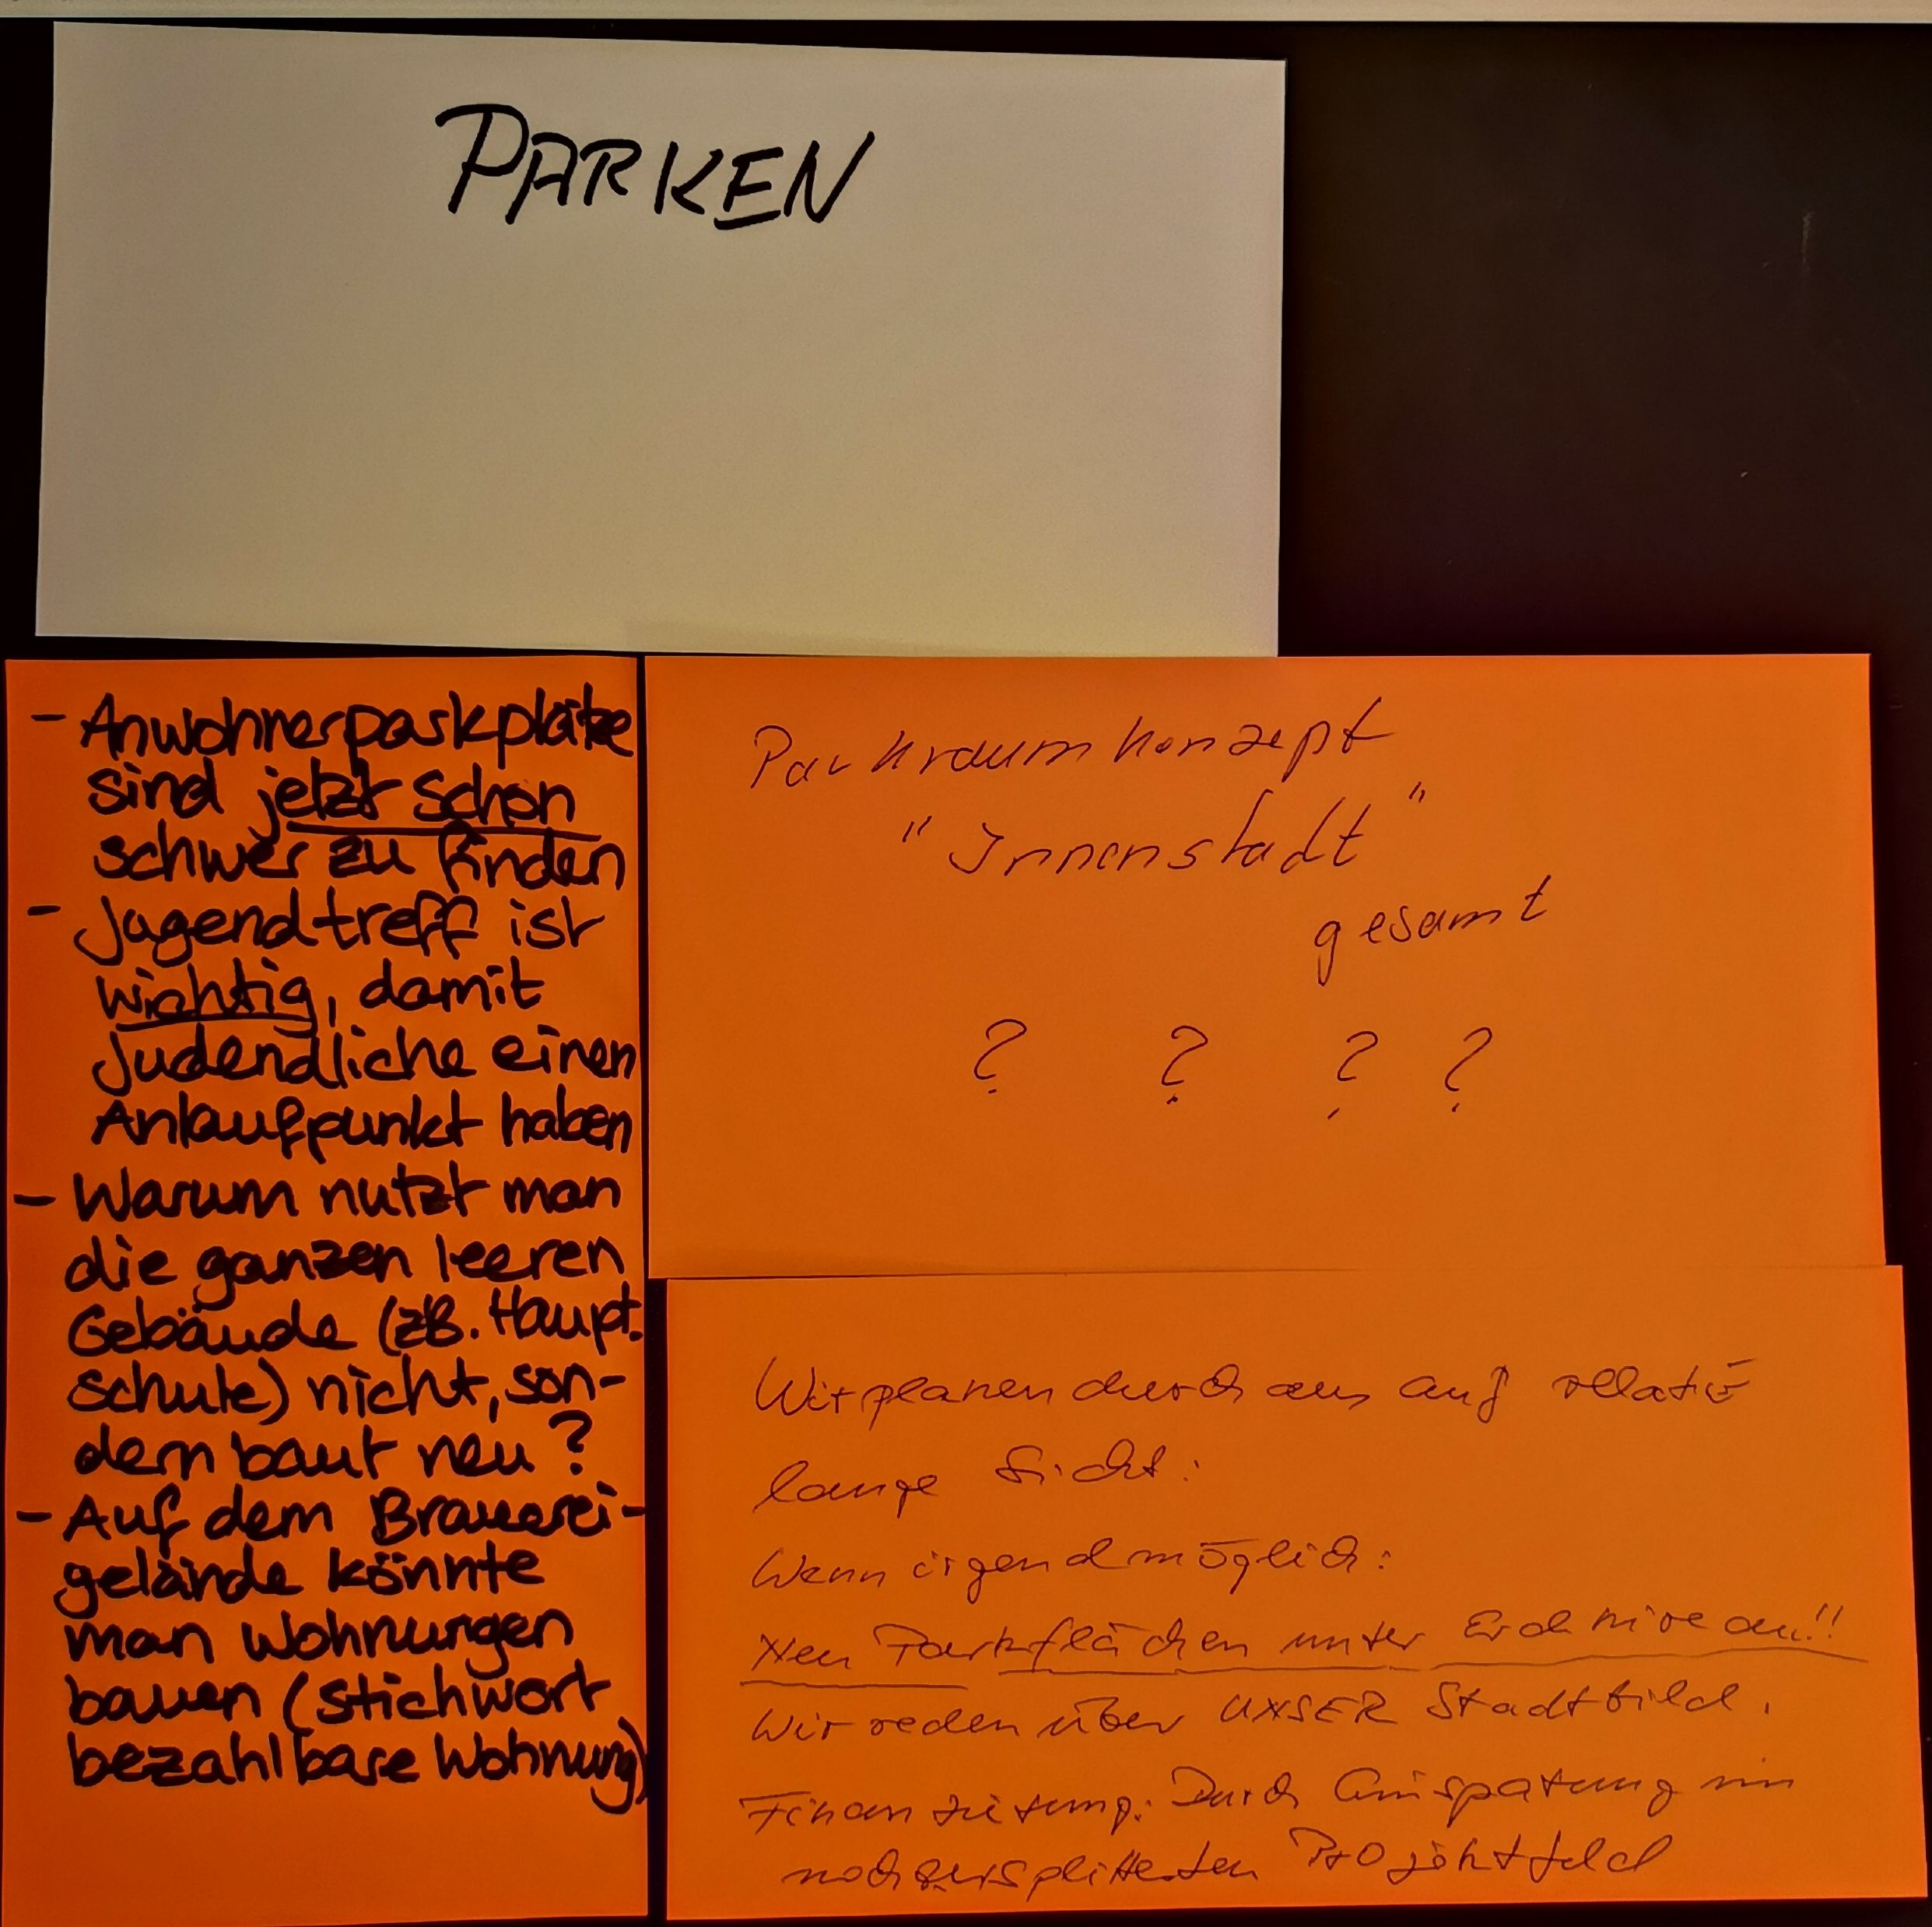 PARKEN
- Anwohnerparkplätze
sind jetzt schon
schwer zu finden
- Jugendtreff ist
wichtig, damit
Judendliche einen
Anlaufpunkt haben
- Warum nutzt man
die ganzen leeren
Gebäude (zB. Haupt-
schule) nicht, son-
dern baut neu?
- Auf dem Brauerei-
gelände könnte
man Wohnungen
bauen (Stichwort
bezahlbare Wohnung)
Parkraumkonzept
"Innenstadt"
gesamt
? ? ? ?
Wir planen durchaus auf relativ
lange Sicht:
Wenn irgend möglich:
Neu Parkflächen unter Erdniveau!!
Wir reden über UNSER Stadtbild.
Finanzierung: Durch Einsparung im
noch zersplitterten Projektfeld